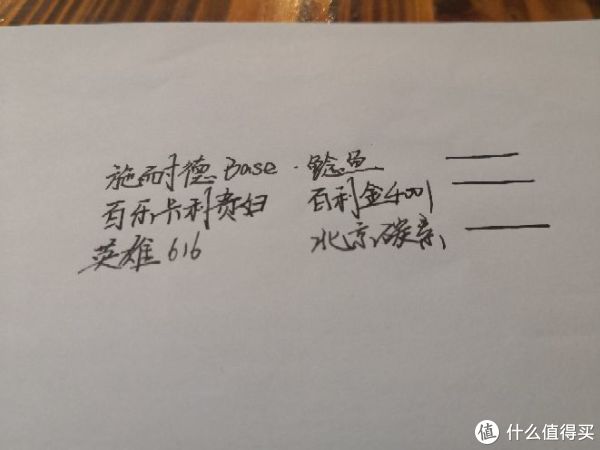 施耐德 Base · 鲶鱼
百乐卡利贵妇 百利金4001
英雄 616 北京碳素
值 什么值得买